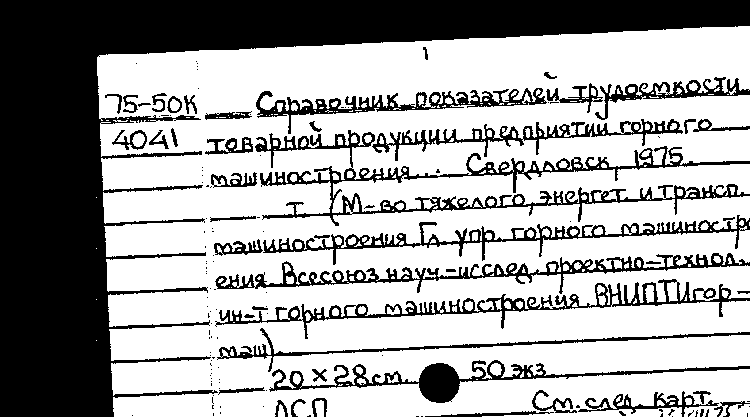 1
75-50К Справочник показателей трудоемкости
4041 товарной продукции предприятий горного
машиностроения... Свердловск, 1975.
т. (М-во тяжелого, энергет. и трансп.
машиностроения Гл. упр. горного машиностро
ения. Всесоюз. науч.-исслед. проектно-технол.
ин-т горного машиностроения ВНИПТИгор-
маш).
20 × 28 см. 50 экз.
ДСП См. след. карт.